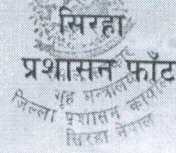 सिरहा
प्रशासन फाँट
गृह मन्त्रालय
जिल्ला प्रशासन कार्यालय
सिरहा नेपाल